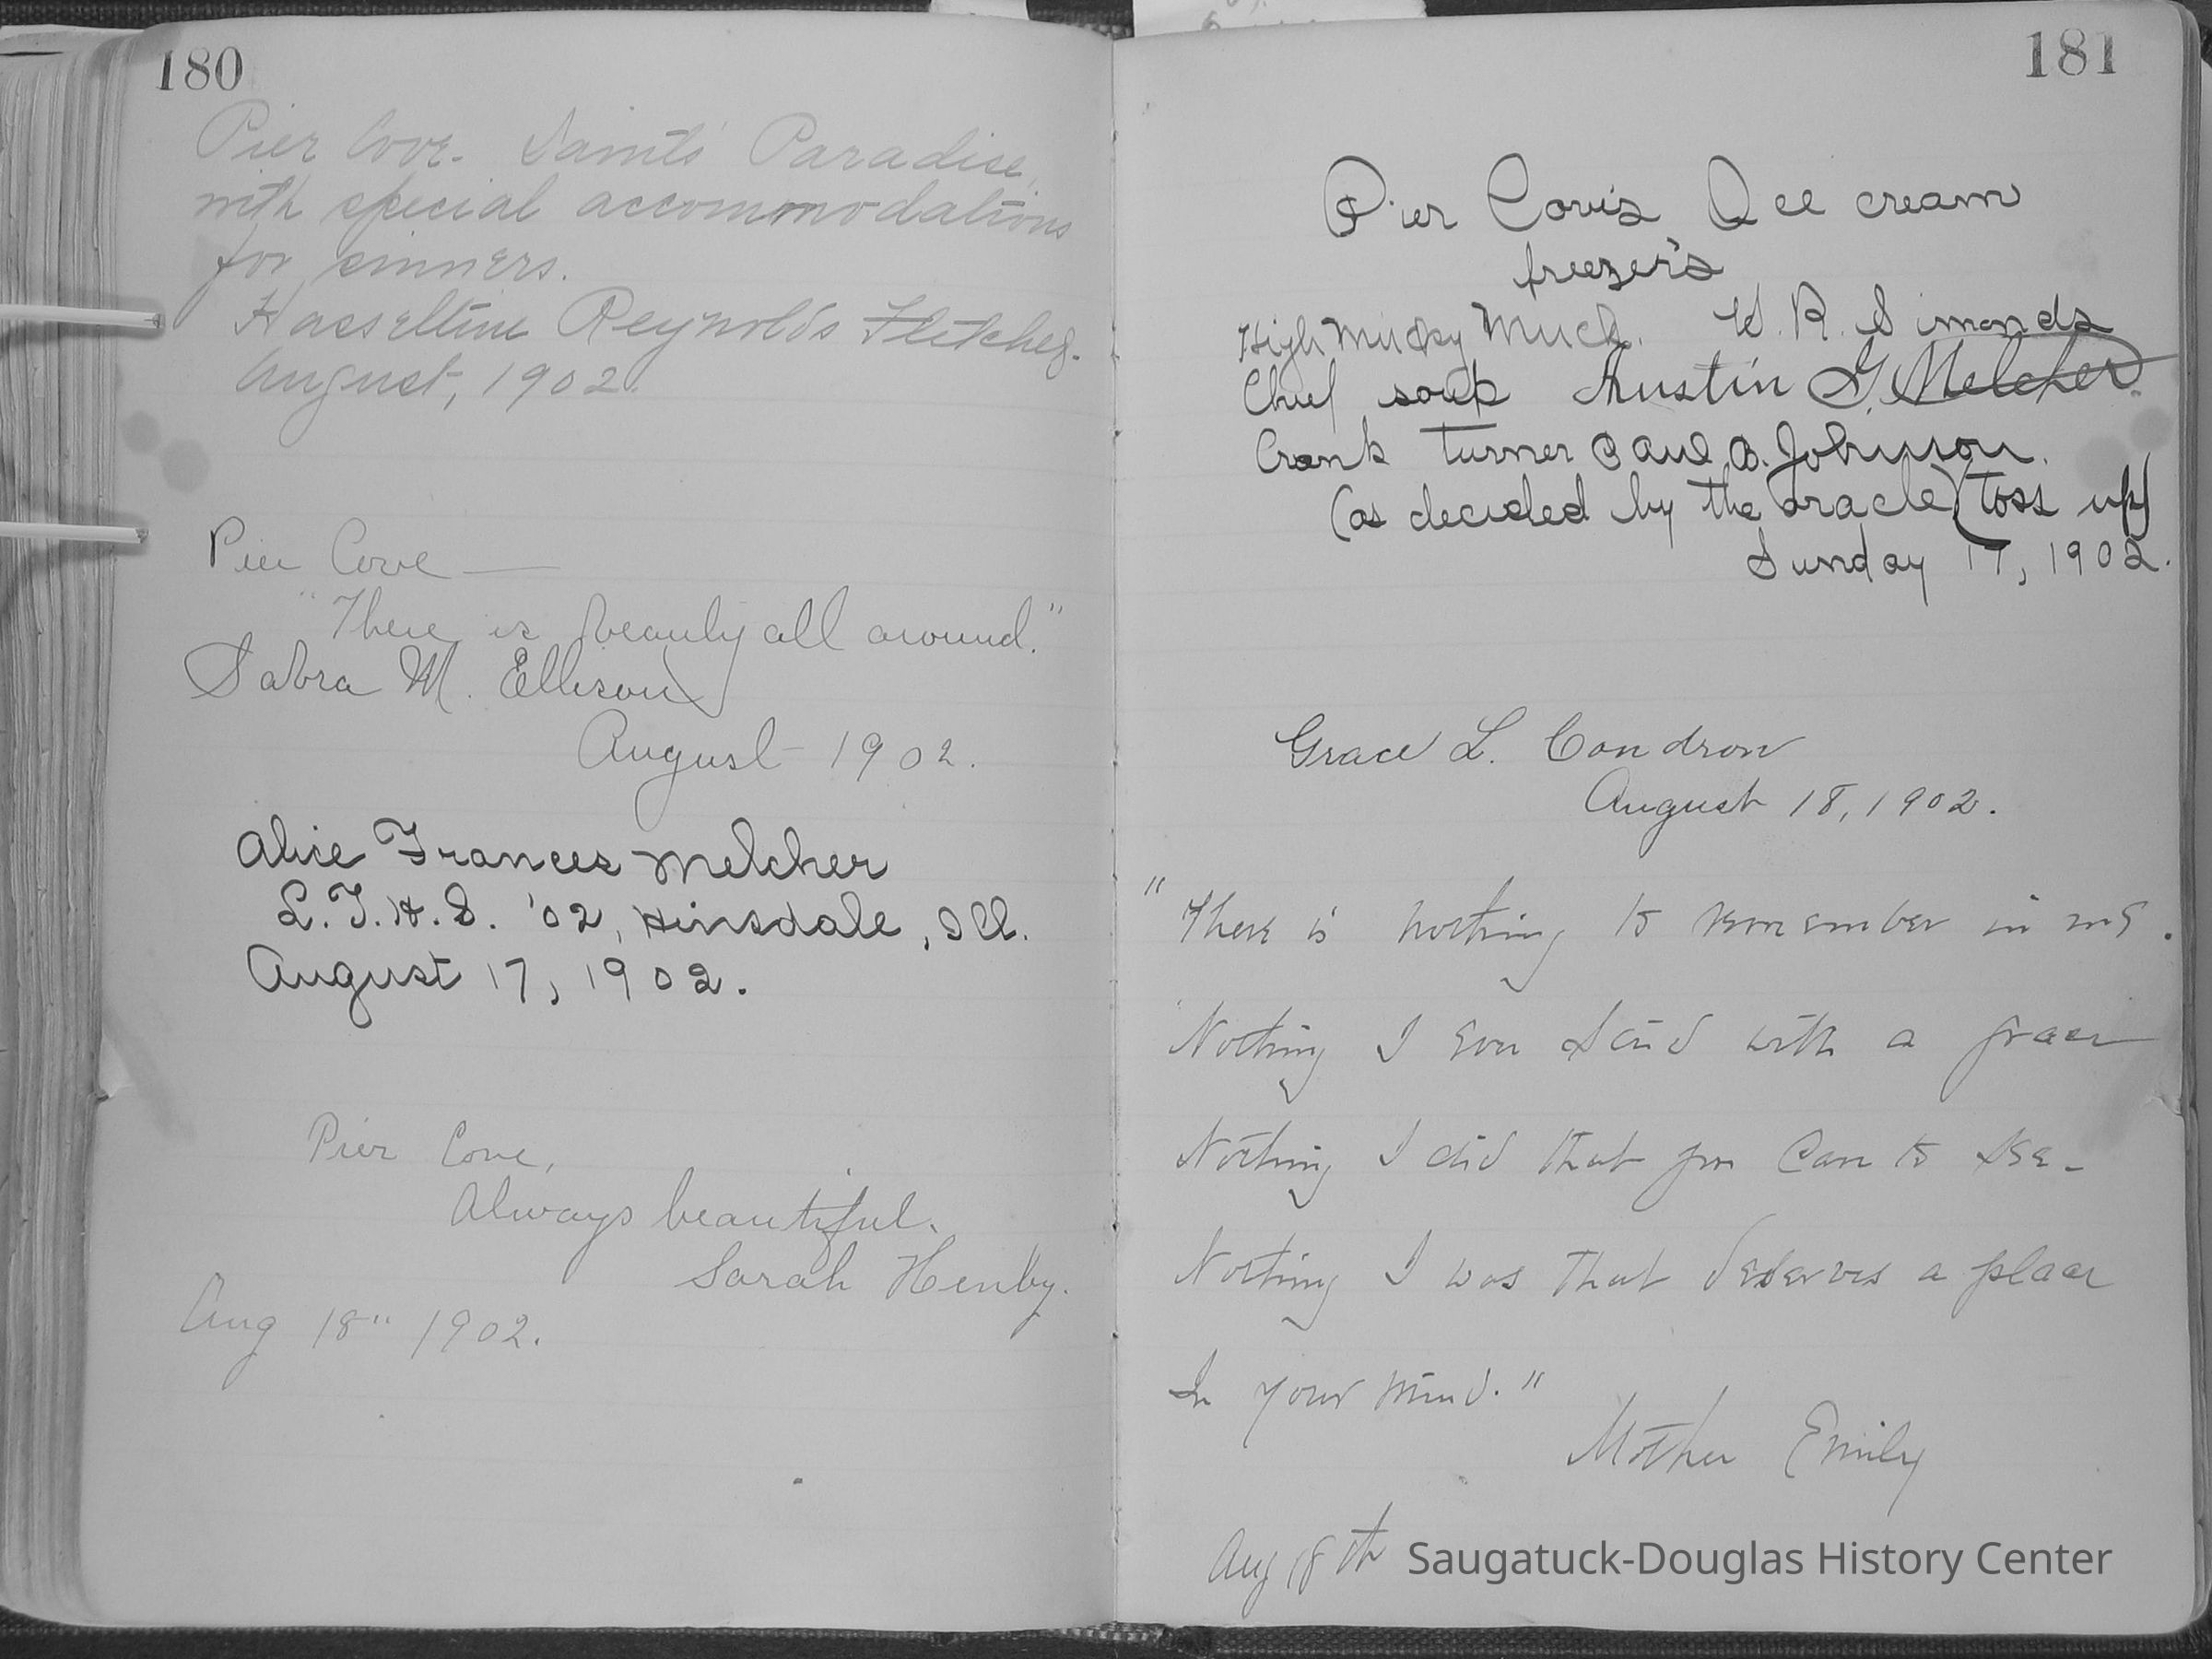 180
Pier Cove. Saints' Paradise,
with special accommodations
for sinners.
Hasseltine Reynolds Fletcher.
August, 1902.
Pier Cove —
"There is beauty all around."
Sabra M. Ellison
August 1902.
Alice Frances Melcher
L.T.H.S. '02, Hinsdale, Ill.
August 17, 1902.
Pier Cove,
Always beautiful.
Sarah Henby.
Aug 18" 1902.
181
Pier Cove's Ice cream
freezer's
High Mucky Much. W. R. Simonds
Chief soup Austin G. Melcher.
Crank turner Paul B. Johnson.
(as decided by the oracle) (toss up)
Sunday 17, 1902.
Grace L. Condron
August 18, 1902.
"There is nothing to remember in me.
Nothing I ever said with a grace
Nothing I did that you care to see -
Nothing I was that deserves a place
In your mind."
Mother Emily
Aug 18th
Saugatuck-Douglas History Center